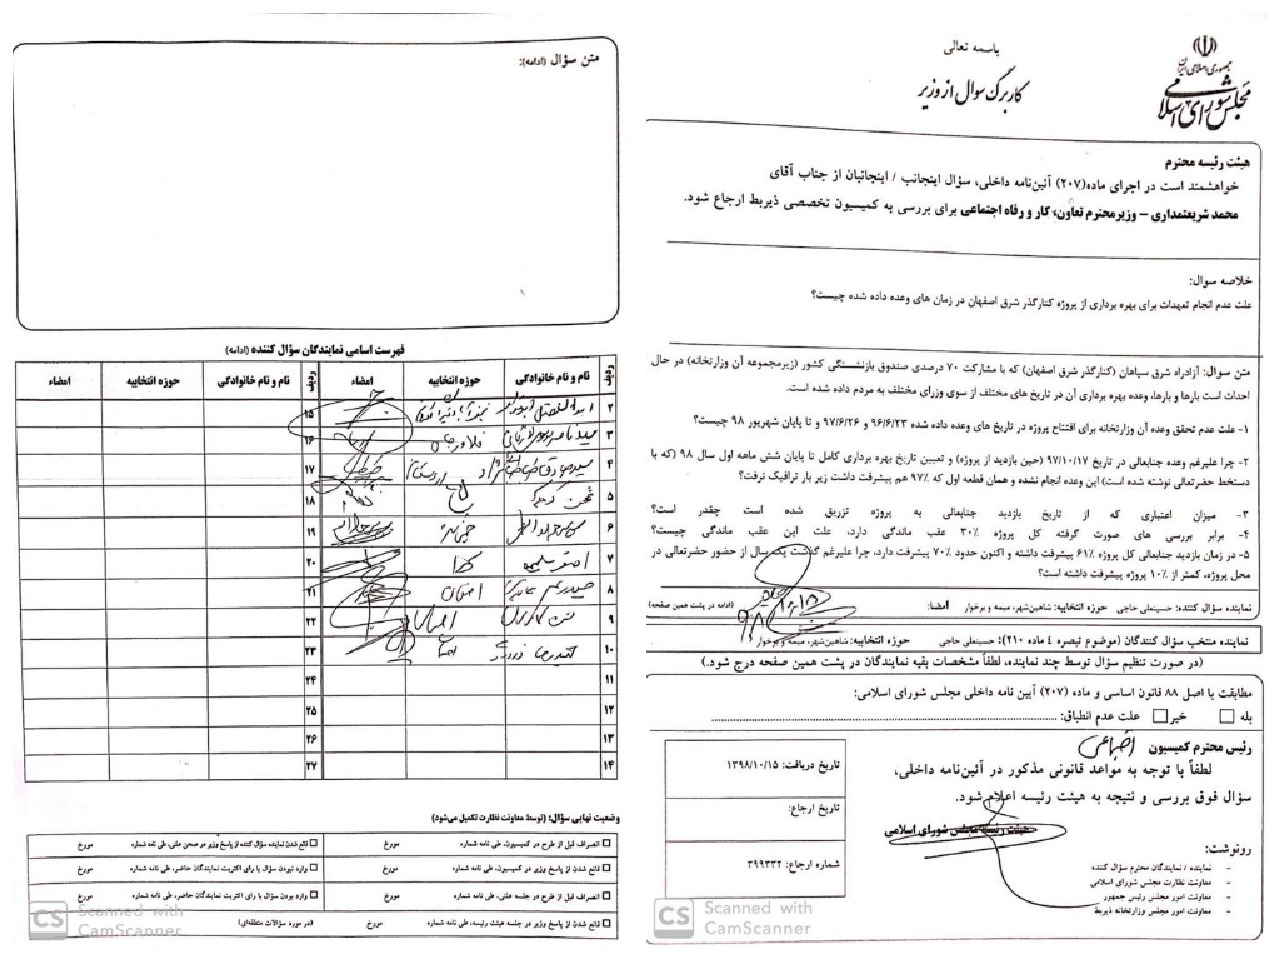 باسمه تعالی
کاربرگ سوال از وزیر
جمهوری اسلامی ایران
مجلس شورای اسلامی
هیئت رئیسه محترم
خواهشمند است در اجرای ماده(۲۰۷) آئین‌نامه داخلی، سؤال اینجانب / اینجانبان از جناب آقای
محمد شریعتمداری – وزیرمحترم تعاون، کار و رفاه اجتماعی برای بررسی به کمیسیون تخصصی ذیربط ارجاع شود.
خلاصه سوال:
علت عدم انجام تعهدات برای بهره برداری از پروژه کنارگذر شرق اصفهان در زمان های وعده داده شده چیست؟
متن سوال: آزادراه شرق سپاهان (کنارگذر شرق اصفهان) که با مشارکت ۷۰ درصدی صندوق بازنشستگی کشور (زیرمجموعه آن وزارتخانه) در حال
احداث است بارها و بارها، وعده بهره برداری آن در تاریخ های مختلف از سوی وزرای مختلف به مردم داده شده است.
۱- علت عدم تحقق وعده آن وزارتخانه برای افتتاح پروژه در تاریخ های وعده داده شده ۹۶/۶/۲۳ و ۹۷/۶/۲۶ و تا پایان شهریور ۹۸ چیست؟
۲- چرا علیرغم وعده جنابعالی در تاریخ ۹۷/۱۰/۱۷ (حین بازدید از پروژه) و تعیین تاریخ بهره برداری کامل تا پایان شش ماهه اول سال ۹۸ (که با
دستخط حضرتعالی نوشته شده است) این وعده انجام نشده و همان قطعه اول که ۹۷٪ هم پیشرفت داشت زیر بار ترافیک نرفت؟
۳- میزان اعتباری که از تاریخ بازدید جنابعالی به پروژه تزریق شده است چقدر است؟
۴- برابر بررسی های صورت گرفته کل پروژه ۳۰٪ عقب ماندگی دارد، علت این عقب ماندگی چیست؟
۵- در زمان بازدید جنابعالی کل پروژه ۶۱٪ پیشرفت داشته و اکنون حدود ۷۰٪ پیشرفت دارد، چرا علیرغم گذشت یک سال از حضور حضرتعالی در
محل پروژه، کمتر از ۱۰٪ پروژه پیشرفت داشته است؟
نماینده سؤال کننده: حسینعلی حاجی حوزه انتخابیه: شاهین‌شهر، میمه و برخوار امضا: (ادامه در پشت همین صفحه)
نماینده منتخب سؤال کنندگان (موضوع تبصره ٤ ماده ۲۱۰): حسینعلی حاجی حوزه انتخابیه: شاهین‌شهر، میمه و برخوار
(در صورت تنظیم سؤال توسط چند نماینده، لطفاً مشخصات بقیه نمایندگان در پشت همین صفحه درج شود.)
مطابقت با اصل ۸۸ قانون اساسی و ماده (۲۰۷) آیین نامه داخلی مجلس شورای اسلامی:
بله خیر علت عدم انطباق:
رئیس محترم کمیسیون اجتماعی
لطفاً با توجه به مواعد قانونی مذکور در آئین‌نامه داخلی،
سؤال فوق بررسی و نتیجه به هیئت رئیسه اعلام شود.
هیئت رئیسه مجلس شورای اسلامی
تاریخ دریافت: ۱۳۹۸/۱۰/۱۵
تاریخ ارجاع:
شماره ارجاع: ۳۹۹۳۳۲
رونوشت:
- نماینده / نمایندگان محترم سؤال کننده
- معاونت نظارت مجلس شورای اسلامی
- معاونت امور مجلس رئیس جمهور
- معاونت امور مجلس وزارتخانه ذیربط
Scanned with
CamScanner
متن سؤال (ادامه):
فهرست اسامی نمایندگان سؤال کننده (ادامه)
ردیف نام و نام خانوادگی حوزه انتخابیه امضاء ردیف نام و نام خانوادگی حوزه انتخابیه امضاء
۲ ۱۵
۳ فلاورجان ۱۶
۴ اردستان ۱۷
۵ ۱۸
۶ ۱۹
۷ اصغر سلیمی ۲۰
۸ اصفهان ۲۱
۹ ۲۲
۱۰ ۲۳
۱۱ ۲۴
۱۲ ۲۵
۱۳ ۲۶
۱۴ ۲۷
وضعیت نهایی سؤال: (توسط معاونت نظارت تکمیل می‌شود)
انصراف قبل از طرح در کمیسیون، طی نامه شماره مورخ قانع شدن نماینده سؤال کننده از پاسخ وزیر در صحن علنی، طی نامه شماره مورخ
قانع شدن از پاسخ وزیر در کمیسیون، طی نامه شماره مورخ وارد نبودن سؤال با رای اکثریت نمایندگان حاضر، طی نامه شماره مورخ
انصراف قبل از طرح در جلسه علنی، طی نامه شماره مورخ وارد بودن سؤال با رای اکثریت نمایندگان حاضر، طی نامه شماره مورخ
قانع شدن از پاسخ وزیر در جلسه هیئت رئیسه، طی نامه شماره مورخ (در مورد سؤالات منطقه‌ای)
CS Scanned with
CamScanner